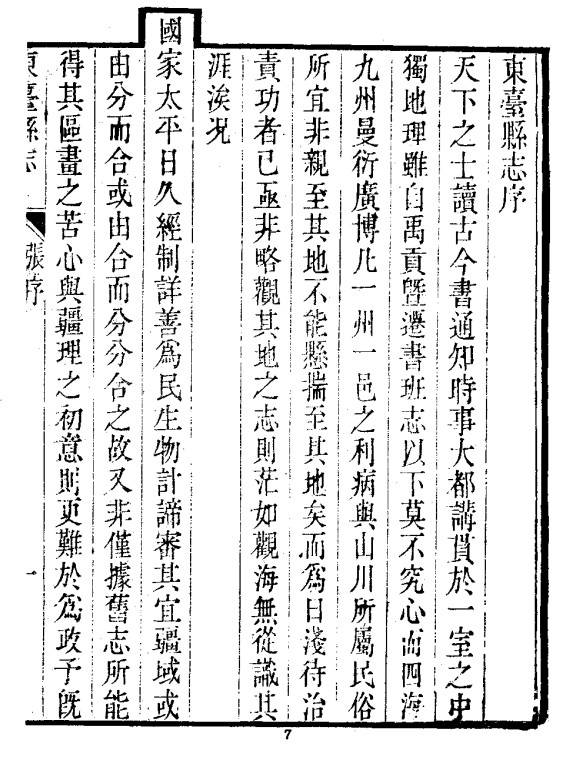 東臺縣志序
天下之士讀古今書通知時事大都講貫於一室之中
獨地理雖自禹貢曁遷書班志以下莫不究心而四海
九州曼衍廣博凡一州一邑之利病與山川所屬民俗
所宜非親至其地不能懸揣至其地矣而為日淺待治
責功者已亟非略觀其地之志則茫如觀海無從識其
涯涘况
國家太平日久經制詳善為民生物計諦審其宜疆域或
由分而合或由合而分分合之故又非僅據舊志所能
得其區畫之苦心與疆理之初意則更難於為政予旣
東臺縣志
張序
一
7